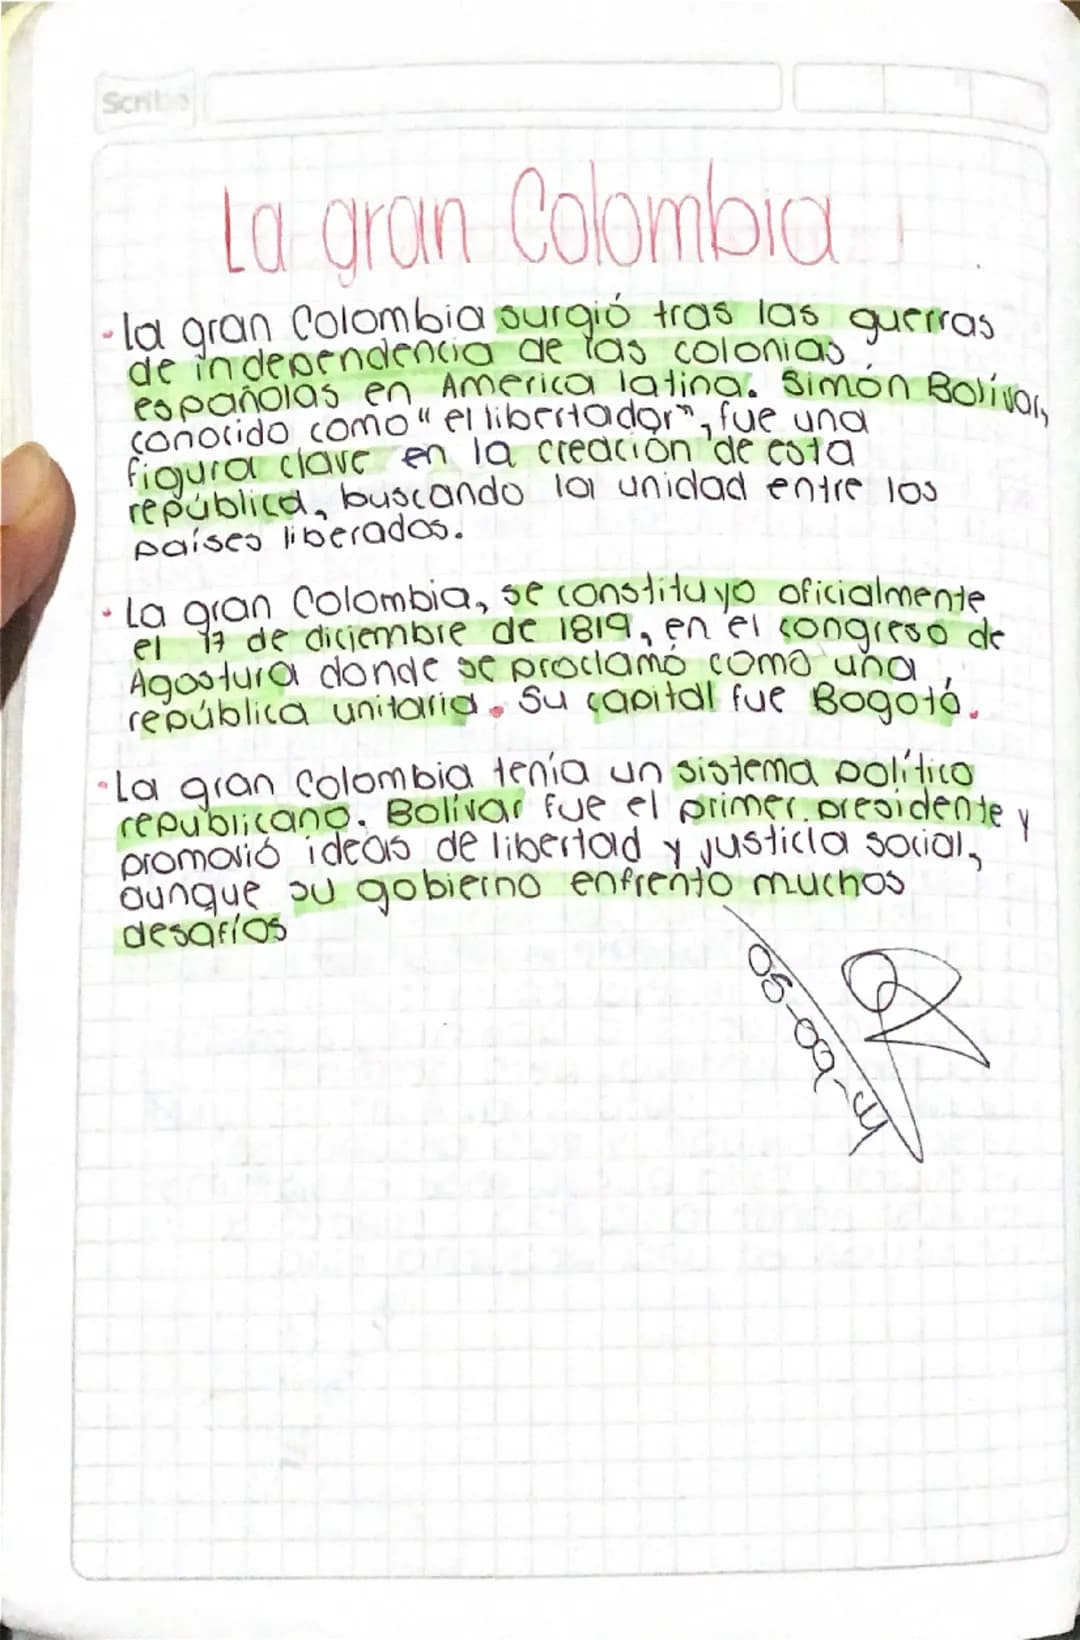 Scribe
La gran Colombia
· la gran Colombia surgió tras las guerras
de independencia de las colonias
españolas en America latina. Simón Bolívar,
conocido como "el libertador", fue una
figura clave en la creación de esta
república, buscando la unidad entre los
países liberados.
· La gran Colombia, se constituyo oficialmente
el 17 de diciembre de 1819, en el congreso de
Agostura donde se proclamó como una
república unitaria. Su capital fue Bogotá.
· La gran Colombia tenía un sistema político
republicano. Bolívar fue el primer presidente y
promovió ideas de libertad y justicia social,
aunque su gobierno enfrento muchos
desafíos